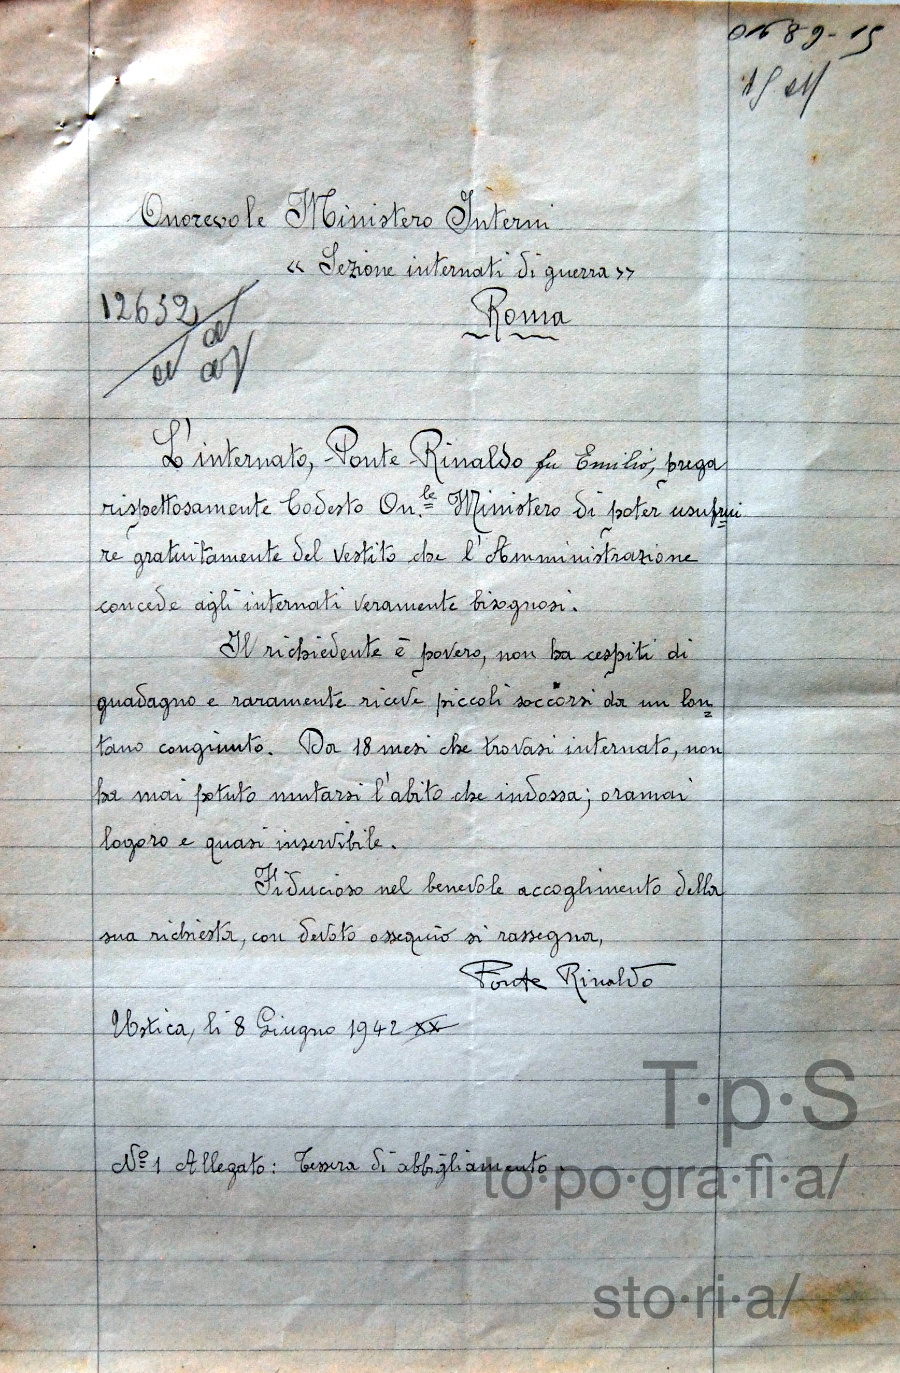 0689-15
Onorevole Ministero Interni
« Sezione internati di guerra »
Roma
12652
L'internato, Ponte Rinaldo fu Emilio, prega
rispettosamente Codesto On.le Ministero di poter usufrui
re gratuitamente del vestito che l'Amministrazione
concede agli internati veramente bisognosi.
Il richiedente è povero, non ha cespiti di
guadagno e raramente riceve piccoli soccorsi da un lon=
tano congiunto. Da 18 mesi che trovasi internato, non
ha mai potuto mutarsi l'abito che indossa; oramai
logoro e quasi inservibile.
Fiducioso nel benevole accoglimento della
sua richiesta, con devoto ossequio si rassegna,
Ponte Rinaldo
Ustica, li 8 Giugno 1942 XX
No 1 Allegato: Tessera di abbigliamento.
T·p·S
to·po·gra·fi·a/
sto·ri·a/